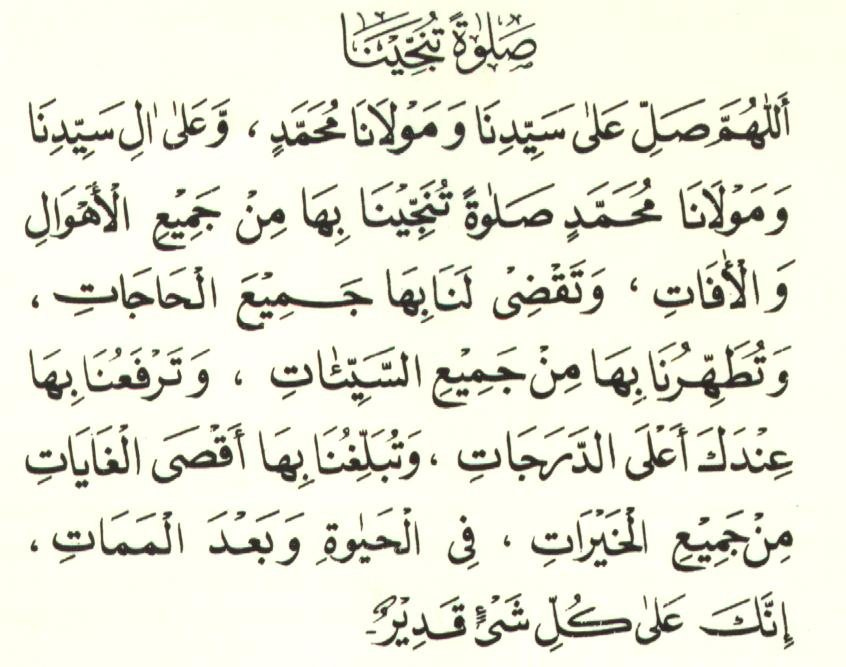 صَلٰوةً تُنَجِّيْنَا
أَللّٰهُمَّ صَلِّ عَلٰى سَيِّدِنَا وَ مَوْلَانَا مُحَمَّدٍ ، وَّعَلٰى اٰلِ سَيِّدِنَا
وَ مَوْلَانَا مُحَمَّدٍ صَلٰوةً تُنَجِّيْنَا بِهَا مِنْ جَمِيْعِ الْأَهْوَالِ
وَ الْأٰفَاتِ ، وَتَقْضِىْ لَنَا بِهَا جَمِيْعَ الْحَاجَاتِ ،
وَ تُطَهِّرُنَا بِهَا مِنْ جَمِيْعِ السَّيِّئٰاتِ ، وَ تَرْفَعُنَا بِهَا
عِنْدَكَ أَعْلَى الدَّرَجَاتِ ، وَتُبَلِّغُنَا بِهَا أَقْصَى الْغَايَاتِ
مِنْ جَمِيْعِ الْخَيْرَاتِ ، فِى الْحَيٰوةِ وَ بَعْدَ الْمَمَاتِ ،
إِنَّكَ عَلٰى كُلِّ شَىْءٍ قَدِيْرٌ